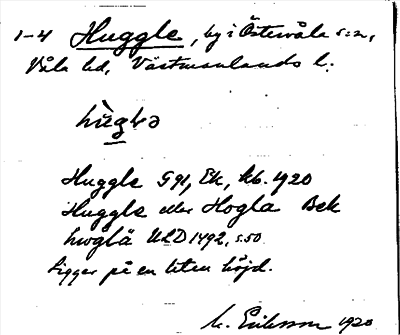 1-4 Huggle, by i Östervåla s:n,
Våla hd, Västmanlands l.
hùglə
Huggle G 91, Ek, kb. 1920
Huggle eller Hogla Bek
hwglä ULD 1492, s. 50.
Ligger på en liten höjd.
M. Eriksson 1920